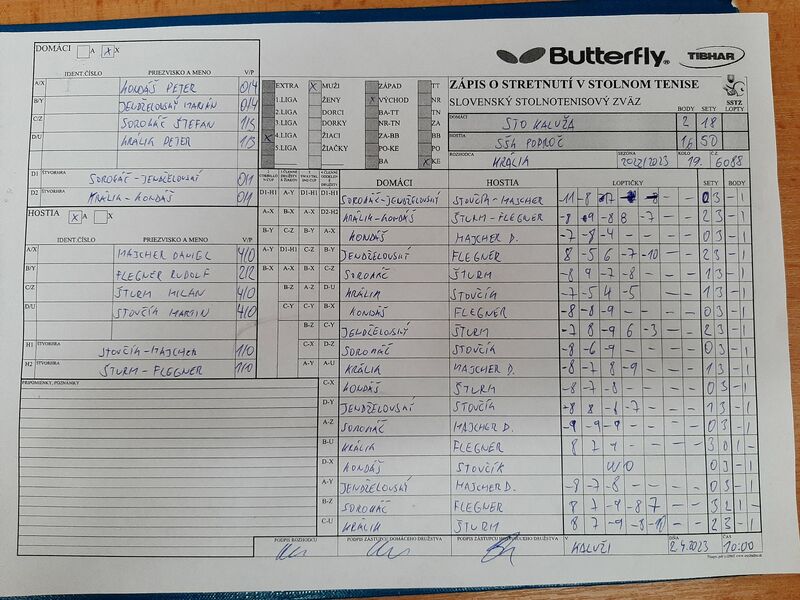 DOMÁCI A X X
IDENT.ČÍSLO PRIEZVISKO A MENO V/P
A/X KONDÁŠ PETER 0/4
B/Y JENDŽELOVSKÝ MARIÁN 0/4
C/Z SOROKÁČ ŠTEFAN 1/3
D/U KRÁLIK PETER 1/3
D1 ŠTVORHRA SOROKÁČ-JENDŽELOVSKÝ 0/1
D2 ŠTVORHRA KRÁLIK-KONDÁŠ 0/1
HOSTIA X A X
IDENT.ČÍSLO PRIEZVISKO A MENO V/P
A/X MAJCHER DANIEL 4/0
B/Y FLEGNER RUDOLF 2/2
C/Z ŠTURM MILAN 4/0
D/U STOVČÍK MARTIN 4/0
H1 ŠTVORHRA STOVČÍK-MAJCHER 1/0
H2 ŠTVORHRA ŠTURM-FLEGNER 1/0
PRIPOMIENKY, POZNÁMKY
Butterfly TIBHAR
EXTRA X MUŽI ZÁPAD TT
1.LIGA ŽENY X VÝCHOD NR
2.LIGA DORCI BA-TT TN
3.LIGA DORKY NR-TN ZA
X 4.LIGA ŽIACI ZA-BB BB
5.LIGA ŽIAČKY PO-KE PO
BA X KE
ZÁPIS O STRETNUTÍ V STOLNOM TENISE
SLOVENSKÝ STOLNOTENISOVÝ ZVÄZ SSTZ
BODY SETY LOPTY
DOMÁCI STO KALUŽA 2 18
HOSTIA SŠK PODROČ 16 50
ROZHODCA KRALIK SEZÓNA 2022/2023 KOLO 19. Č.Z. 6088
DOMÁCI HOSTIA LOPTIČKY SETY BODY
D1-H1 SOROKÁČ-JENDŽELOVSKÝ STOVČÍK-MAJCHER
D2-H2 KRÁLIK-KONDÁŠ ŠTURM-FLEGNER -8 9 -8 8 -7 - - 2 3 - 1
A-X KONDÁŠ MAJCHER D. -7 -8 -4 - - - - 0 3 - 1
B-Y JENDŽELOVSKÝ FLEGNER 8 -5 6 -7 -10 - - 2 3 - 1
C-Z SOROKÁČ ŠTURM -8 9 -7 -8 - - - 1 3 - 1
D-U KRÁLIK STOVČÍK -7 -5 4 -5 - - - 1 3 - 1
B-X KONDÁŠ FLEGNER -8 -8 -9 - - - - 0 3 - 1
C-Y JENDŽELOVSKÝ ŠTURM -7 8 -9 6 -3 - - 2 3 - 1
D-Z SOROKÁČ STOVČÍK -8 -6 -9 - - - - 0 3 - 1
A-U KRÁLIK MAJCHER D. -8 -7 8 -9 - - - 1 3 - 1
C-X KONDÁŠ ŠTURM -8 -7 -8 - - - - 0 3 - 1
D-Y JENDŽELOVSKÝ STOVČÍK -8 8 -6 -7 - - - 1 3 - 1
A-Z SOROKÁČ MAJCHER D. -9 -9 -9 - - - - 0 3 - 1
B-U KRÁLIK FLEGNER 8 7 4 - - - - 3 0 1 -
D-X KONDÁŠ STOVČÍK WO 0 3 - 1
A-Y JENDŽELOVSKÝ MAJCHER D. -8 -7 -8 - - - - 0 3 - 1
B-Z SOROKÁČ FLEGNER 8 7 -9 -8 7 - - 3 2 1 -
C-U KRÁLIK ŠTURM 8 7 -9 -8 -10 - - 2 3 - 1
PODPIS ROZHODCU PODPIS ZÁSTUPCU DOMÁCEHO DRUŽSTVA PODPIS ZÁSTUPCU HOSŤUJÚCEHO DRUŽSTVA V KALUŽI DŇA 2.4.2023 ČAS 10:00